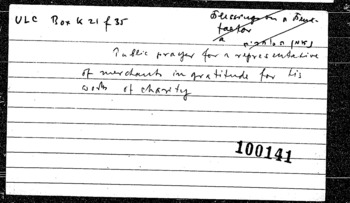 ULC Box K 21 f 35
Blessings on a Bene-
factor
Public prayer for a representative
of merchants in gratitude for his
works of charity
100141